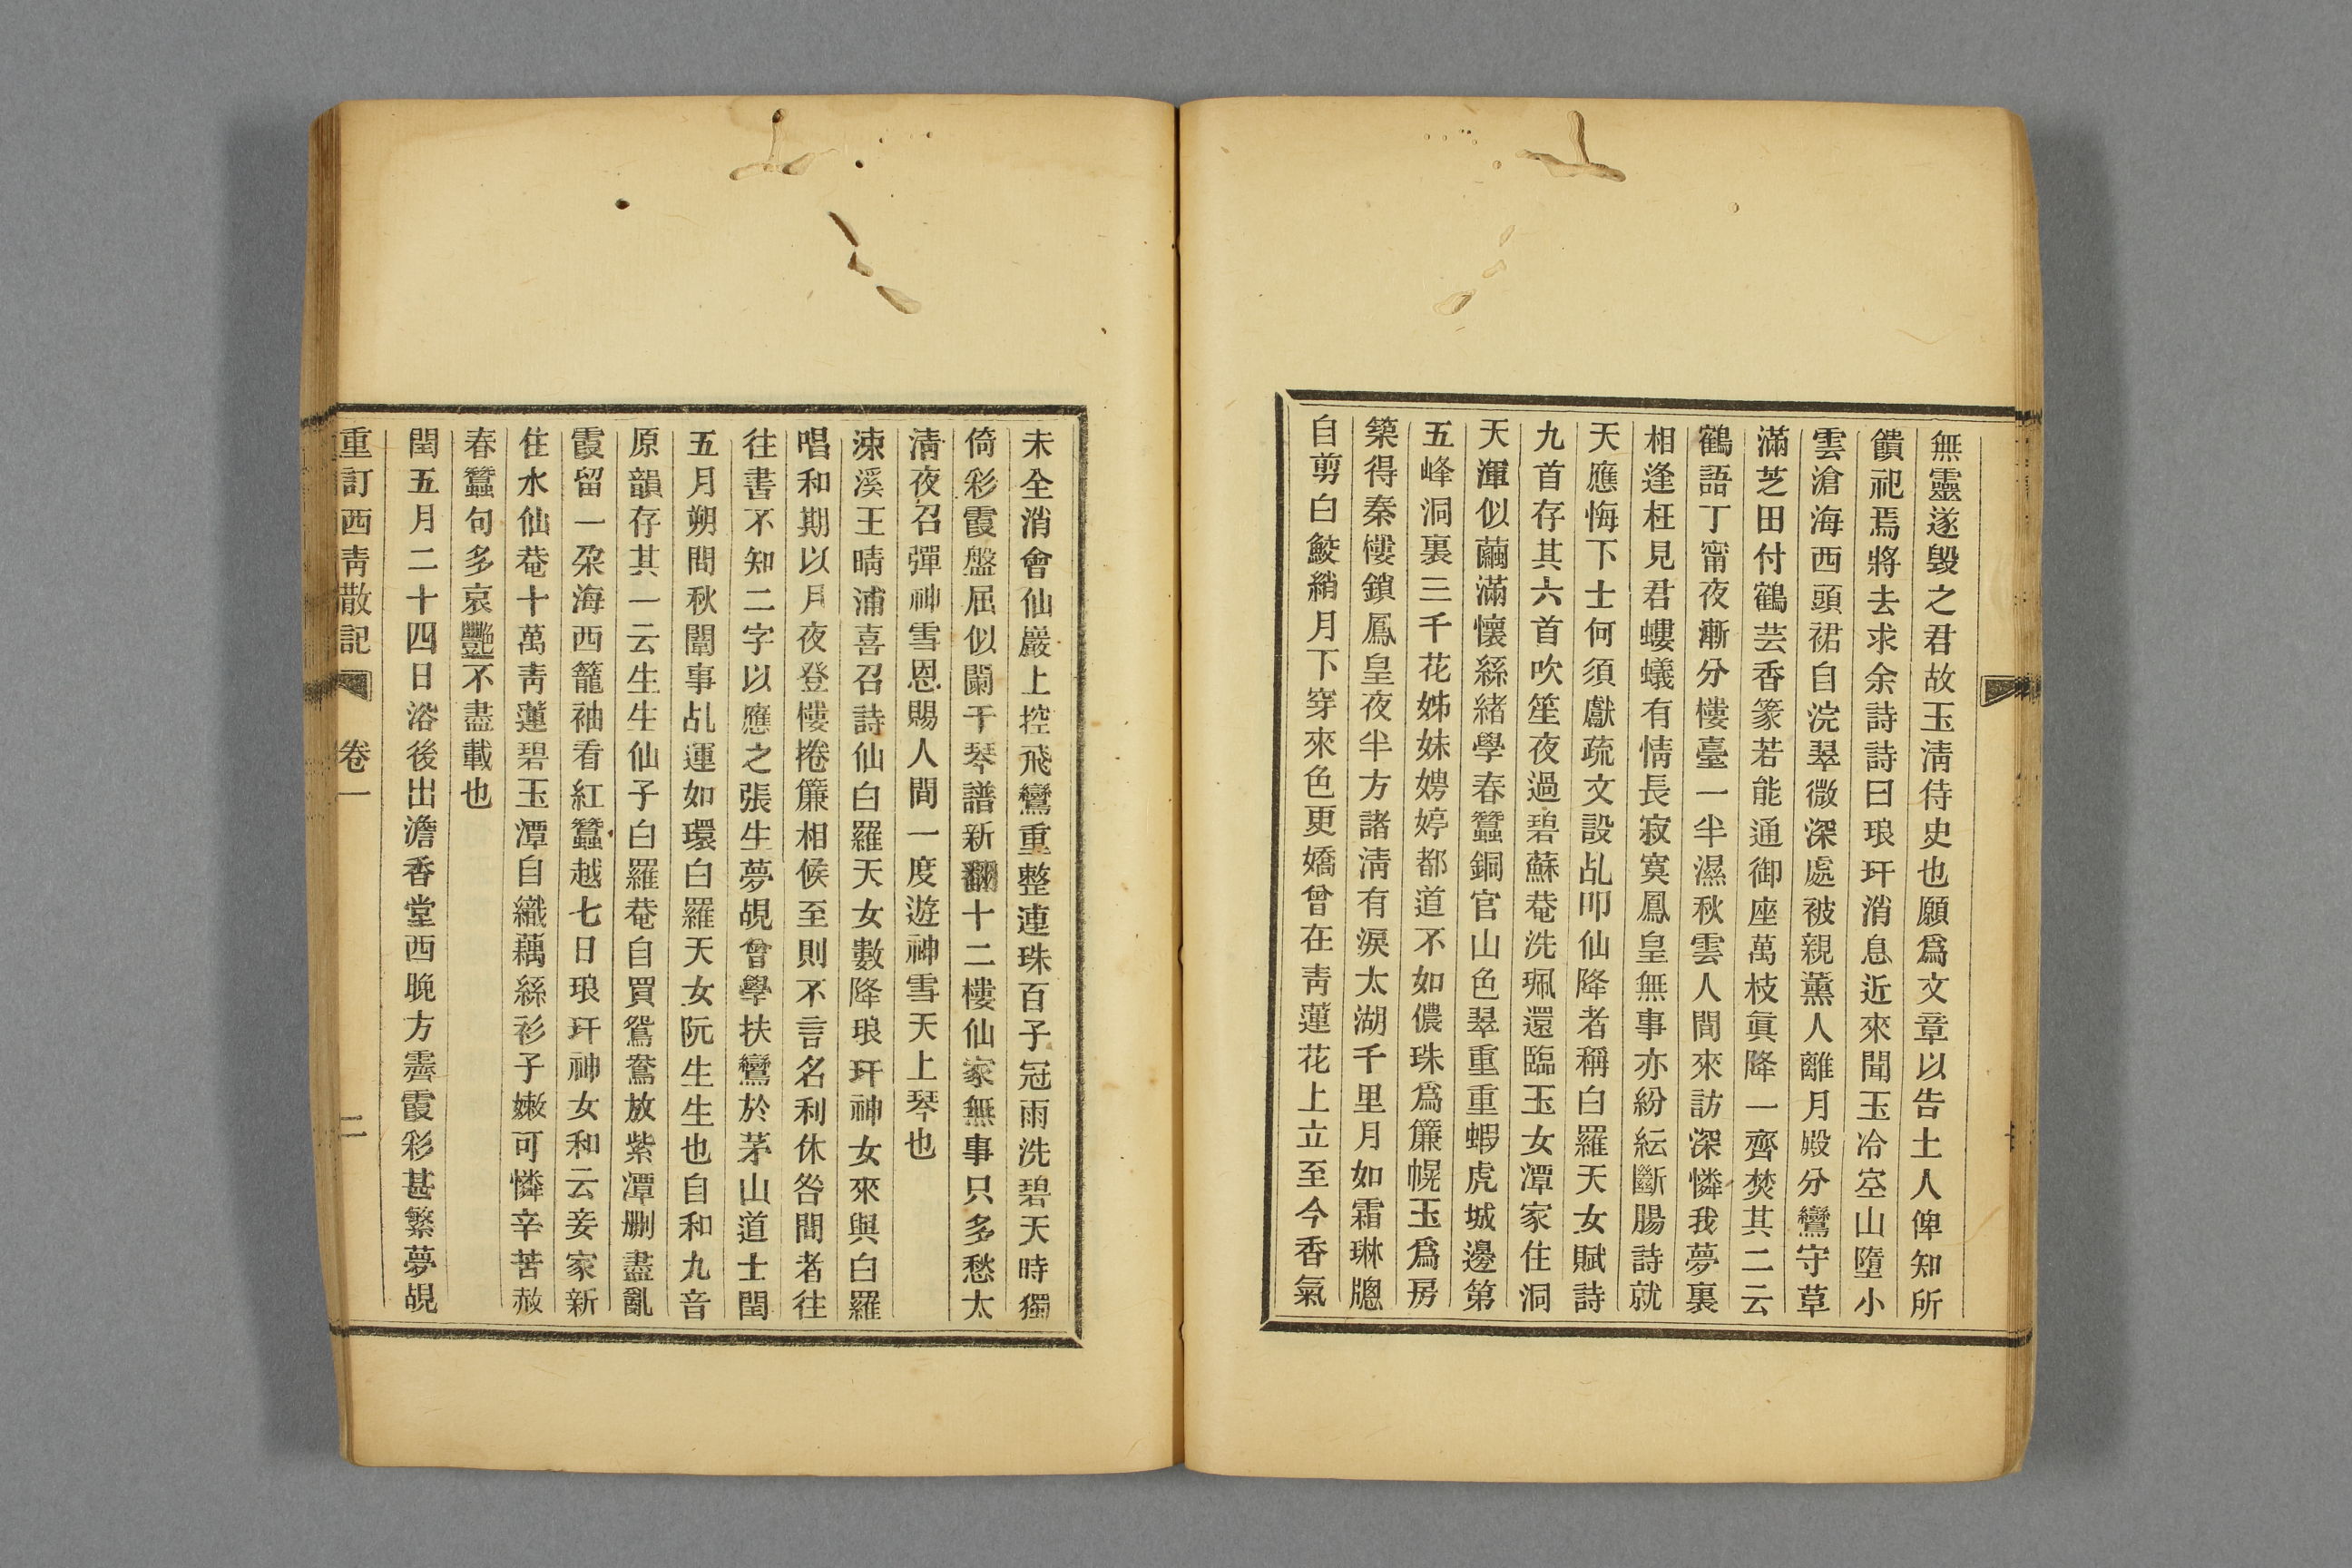 無靈遂毀之君故玉淸侍史也願爲文章以告土人俾知所
饋祀焉將去求余詩詩曰琅玕消息近來聞玉冷空山墮小
雲滄海西頭裙自浣翠微深處被親薰人離月殿分鸞守草
滿芝田付鶴芸香篆若能通御座萬枝眞降一齊焚其二云
鶴語丁甯夜漸分樓臺一半濕秋雲人間來訪深憐我夢裏
相逢枉見君螻蟻有情長寂寞鳳皇無事亦紛紜斷腸詩就
天應悔下士何須獻疏文設乩叩仙降者稱白羅天女賦詩
九首存其六首吹笙夜過碧蘇菴洗珮還臨玉女潭家住洞
天渾似繭滿懷絲緖學春蠶銅官山色翠重重蝦虎城邊第
五峰洞裏三千花姊妹娉婷都道不如儂珠爲簾幌玉爲房
築得秦樓鎖鳳皇夜半方諸淸有淚太湖千里月如霜琳牕
自剪白鮫綃月下穿來色更嬌曾在靑蓮花上立至今香氣
未全消會仙巖上控飛鸞重整連珠百子冠雨洗碧天時獨
倚彩霞盤屈似闌干琴譜新翻十二樓仙家無事只多愁太
淸夜召彈神雪恩賜人間一度遊神雪天上琴也
涑溪王晴浦喜召詩仙白羅天女數降琅玕神女來與白羅
唱和期以月夜登樓捲簾相候至則不言名利休咎問者往
往書不知二字以應之張生夢覘曾學扶鸞於茅山道士閏
五月朔問秋闈事乩運如環白羅天女阮生生也自和九音
原韻存其一云生生仙子白羅菴自買鴛鴦放紫潭删盡亂
霞留一朶海西籠袖看紅蠶越七日琅玕神女和云妾家新
住水仙菴十萬靑蓮碧玉潭自織藕絲衫子嫩可憐辛苦赦
春蠶句多哀艷不盡載也
閏五月二十四日浴後出澹香堂西晚方霽霞彩甚繁夢覘
重訂西靑散記 卷一 二